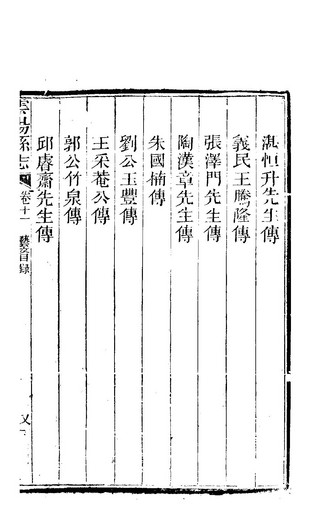 湛恒升先生傳
義民王騰隆傳
張澤門先生傳
陶漢章先生傳
朱國楠傳
劉公玉豐傳
王采菴公傳
郭公竹泉傳
邱睿齋先生傳
縣志 卷十一 藝文目錄